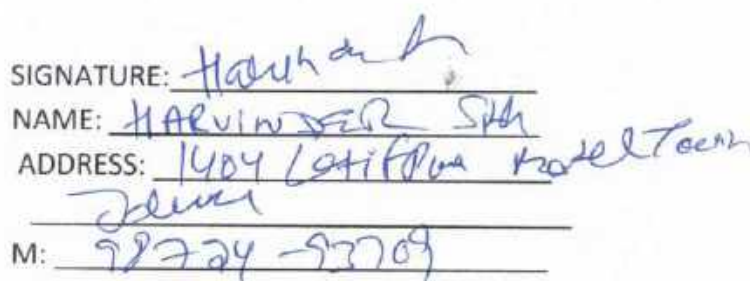 SIGNATURE:
NAME: HARVINDER
ADDRESS: 1404 Latifpur Model Town
M: 98724-93709